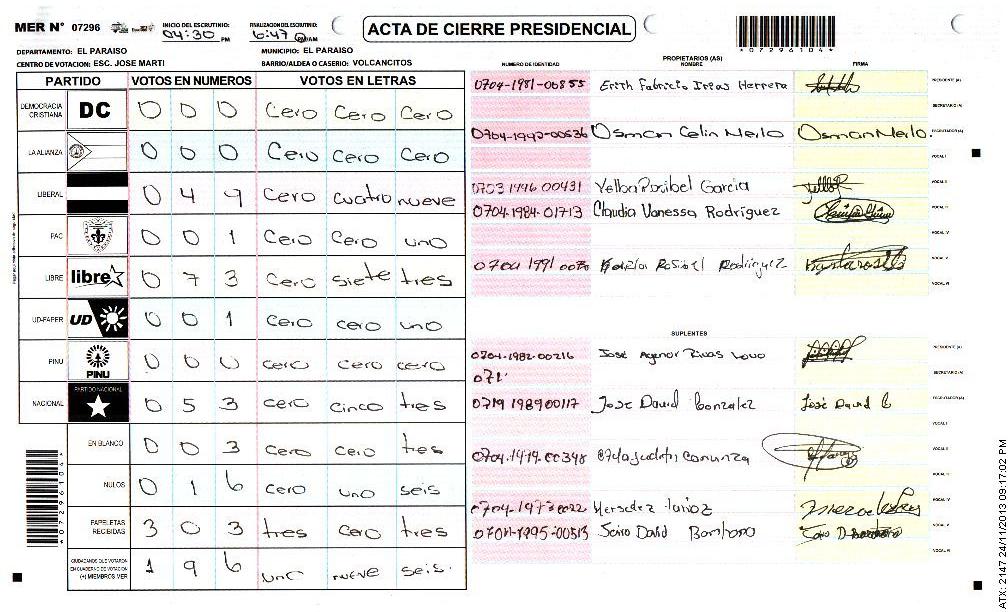 MER N° 07296 INICIO DEL ESCRUTINIO: 04:30 PM FINALIZACION DEL ESCRUTINIO: 6:47 PM/AM ACTA DE CIERRE PRESIDENCIAL *07296104*
DEPARTAMENTO: EL PARAISO MUNICIPIO: EL PARAISO
CENTRO DE VOTACION: ESC. JOSE MARTI BARRIO/ALDEA O CASERIO: VOLCANCITOS
PARTIDO VOTOS EN NUMEROS VOTOS EN LETRAS
DEMOCRACIA CRISTIANA DC 0 0 0 Cero Cero Cero
LA ALIANZA 0 0 0 Cero Cero Cero
LIBERAL 0 4 9 Cero cuatro nueve
PAC 0 0 1 Cero Cero uno
LIBRE libre 0 7 3 Cero siete tres
UD-FAPER UD 0 0 1 Cero cero uno
PINU PINU 0 0 0 cero cero cero
NACIONAL PARTIDO NACIONAL 0 5 3 cero cinco tres
EN BLANCO 0 0 3 cero cero tres
NULOS 0 1 6 cero uno seis
PAPELETAS RECIBIDAS 3 0 3 tres cero tres
CIUDADANOS QUE VOTARON EN CUADERNO DE VOTACION (+) MIEMBROS MER 1 9 6 uno nueve seis
*07296104*
PROPIETARIOS (AS)
NUMERO DE IDENTIDAD NOMBRE FIRMA
0704-1981-00855 Erith Fabricio Herrera PRESIDENTE (A)
SECRETARIO (A)
0704-1990-00536 Osman Celin Merlo Osman Merlo. ESCRUTADOR (A)
VOCAL I
0703 1996 00431 Rosibel Garcia VOCAL II
0704-1984-01713 Claudia Vanessa Rodríguez VOCAL III
VOCAL IV
0704 1991 Rosibel Rodriguez VOCAL V
VOCAL VI
SUPLENTES
0704-1982-00216 José Agenor Rivas PRESIDENTE (A)
071 SECRETARIO (A)
0719 1989 00117 Jose David Gonzalez José David G ESCRUTADOR (A)
VOCAL I
VOCAL II
VOCAL III
VOCAL IV
0704-1995-00513 Jairo David VOCAL V
VOCAL VI
ATX: 2147 24/11/2013 09:17:02 PM